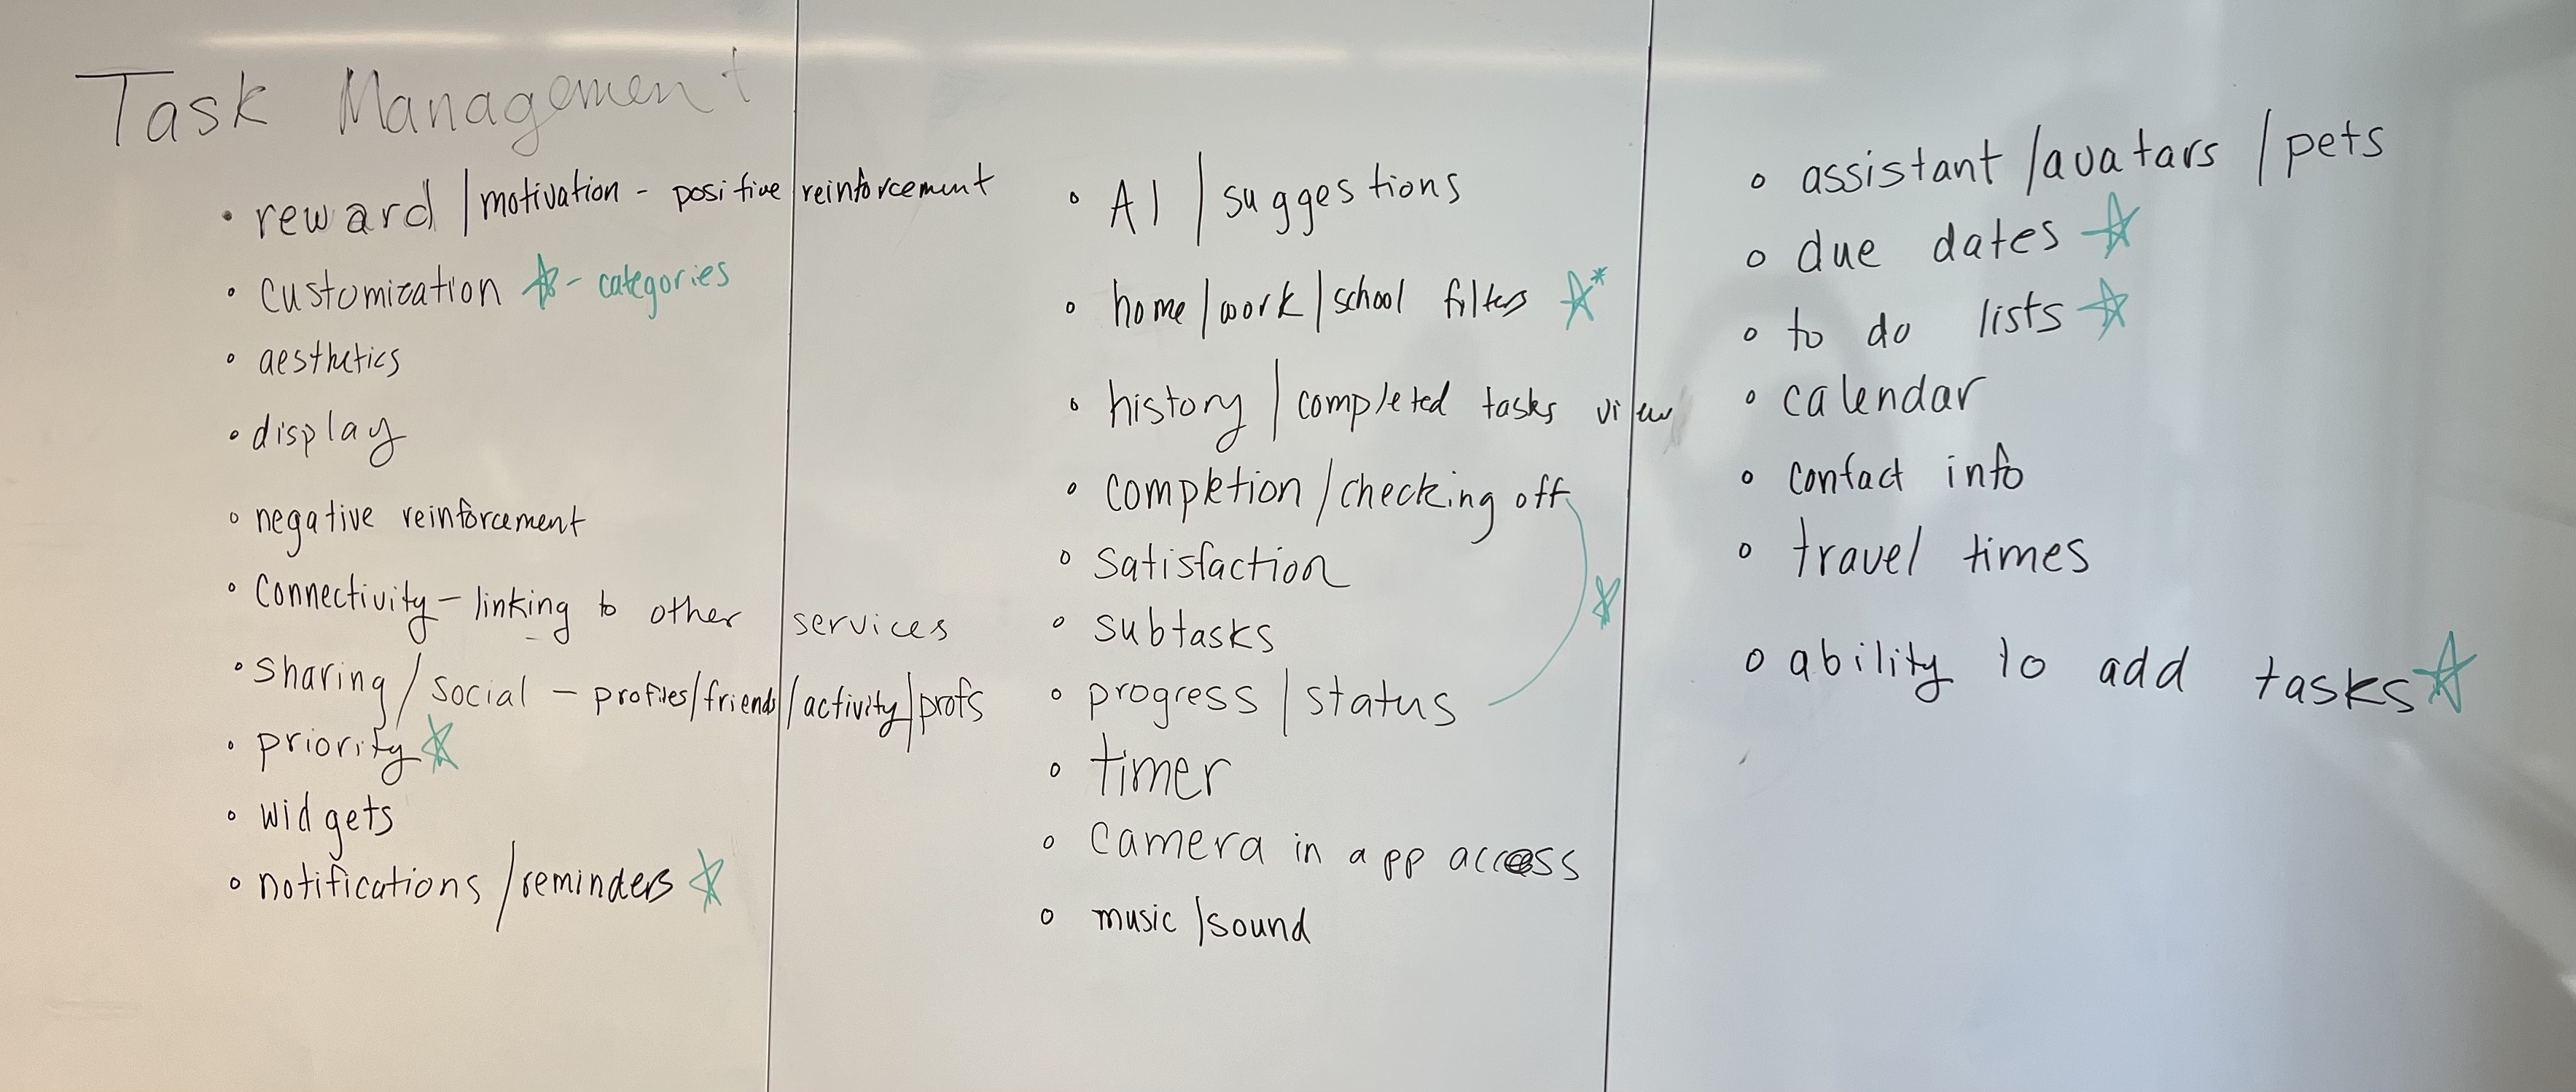 Task Management
• reward / motivation - positive reinforcement
• customization ☆ - categories
• aesthetics
• display
• negative reinforcement
• Connectivity - linking to other services
• sharing / social - profiles/friends/activity/profs
• priority ☆
• widgets
• notifications / reminders ☆
• AI / suggestions
• home/work/school filters ☆*
• history / completed tasks view
• completion / checking off
• satisfaction
☆
• subtasks
• progress / status
• timer
• camera in app access
• music / sound
• assistant / avatars / pets
• due dates ☆
• to do lists ☆
• calendar
• contact info
• travel times
• ability to add tasks ☆